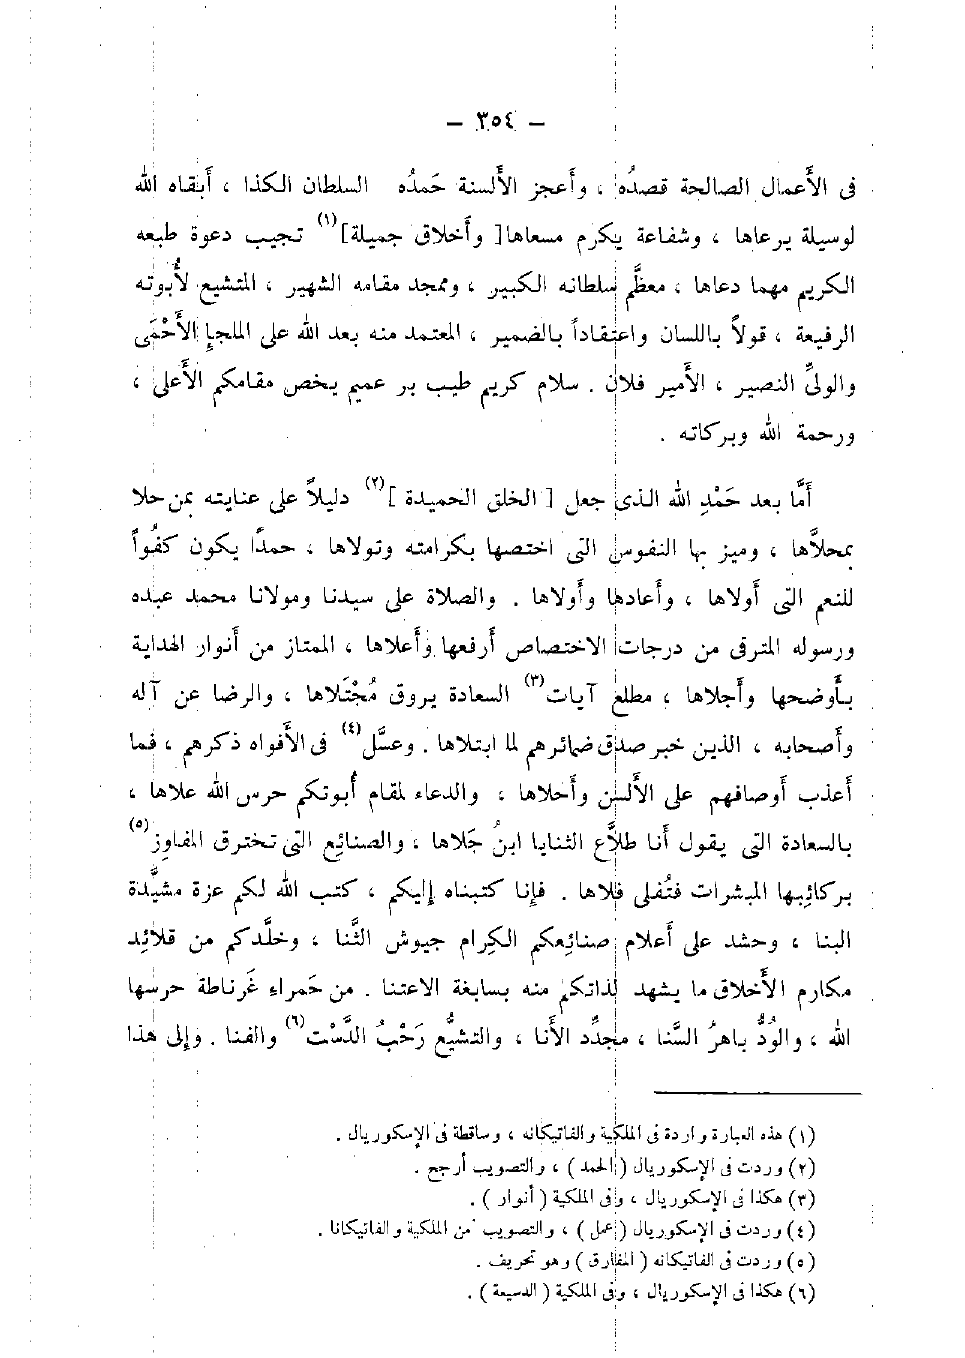 — ٣٥٤ —
فى الأَعمال الصالحة قصدُه ، وأَعجز الأَلسنة حَمدُه السلطان الكذا ، أَبقاه الله
لوسيلة يرعاها ، وشفاعة يكرم مسعاها [ وأَخلاق جميلة ](١) تجيب دعوة طبعه
الكريم مهما دعاها ، معظَّم سلطانه الكبير ، وممجد مقامه الشهير ، المتشيع لأُبوته
الرفيعة ، قولاً باللسان واعتقاداً بالضمير ، المعتمد منه بعد الله على الملجإِ الأَحْمَى
والولىِّ النصير ، الأَمير فلان . سلام كريم طيب بر عميم يخص مقامكم الأَعلى ،
ورحمة الله وبركاته .
أَمَّا بعد حَمْدِ الله الذى جعل [ الخلق الحميدة ](٢) دليلاً على عنايته بمن حلا
بمحلاَّها ، وميز بها النفوس التى اختصها بكرامته وتولاها ، حمدًا يكون كفُواً
للنعم التى أَولاها ، وأَعادها وأَولاها . والصلاة على سيدنا ومولانا محمد عبده
ورسوله المترقى من درجات الاختصاص أَرفعها وأَعلاها ، الممتاز من أَنوار الهداية
بأَوضحها وأَجلاها ، مطلع آيات(٣) السعادة يروق مُجْتَلاها ، والرضا عن آله
وأَصحابه ، الذين خبر صدق ضمائرهم لما ابتلاها . وعسَّل(٤) فى الأَفواه ذكرهم ، فما
أَعذب أَوصافهم على الأَلسن وأَحلاها ، والدعاء لمقام أُبوتكم حرس الله علاها ،
بالسعادة التى يقول أَنا طلاَّع الثنايا ابنُ جَلاها ، والصنائِع التى تخترق المفاوِز(٥)
بركائِبها المبشرات فتُفلى فلاها . فإِنا كتبناه إِليكم ، كتب الله لكم عزة مشيَّدة
البنا ، وحشد على أَعلام صنائِعكم الكرام جيوش الثَّنا ، وخلَّدكم من قلائِد
مكارم الأَخلاق ما يشهد لذاتكم منه بسابغة الاعتنا . من حَمراءِ غَرناطة حرسها
الله ، والوُدُّ باهرُ السَّنا ، مجدِّد الأَنا ، والتشيُّع رَحْبُ الدَّسْت(٦) والفنا . وإِلى هذا
(١) هذه العبارة واردة فى الملكية والفاتيكانه ، وساقطة فى الإسكوريال .
(٢) وردت فى الإسكوريال ( الحمد ) ، والتصويب أرجح .
(٣) هكذا فى الإسكوريال ، وفى الملكية ( أنوار ) .
(٤) وردت فى الإسكوريال ( عمل ) ، والتصويب من الملكية والفاتيكانا .
(٥) وردت فى الفاتيكانه ( المفارق ) وهو تحريف .
(٦) هكذا فى الإسكوريال ، وفى الملكية ( الدسيعة ) .